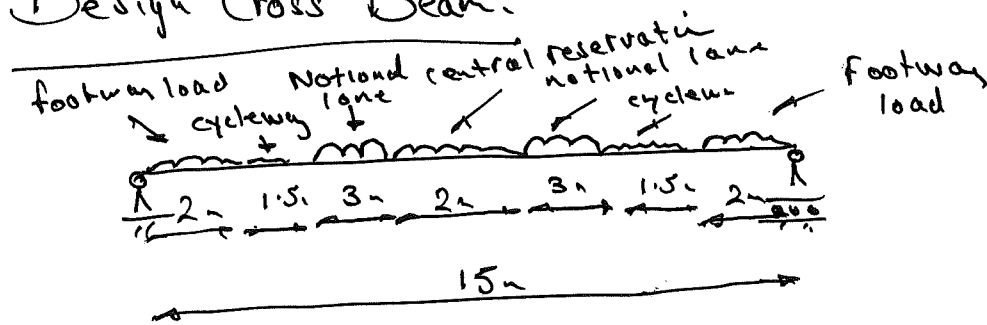 Design Cross Beam.
footway load
cycleway
Notional
lane
central reservation
notional lane
cyclewa
Footway
load
2m 1.5m 3m 2m 3m 1.5m 2m
15m